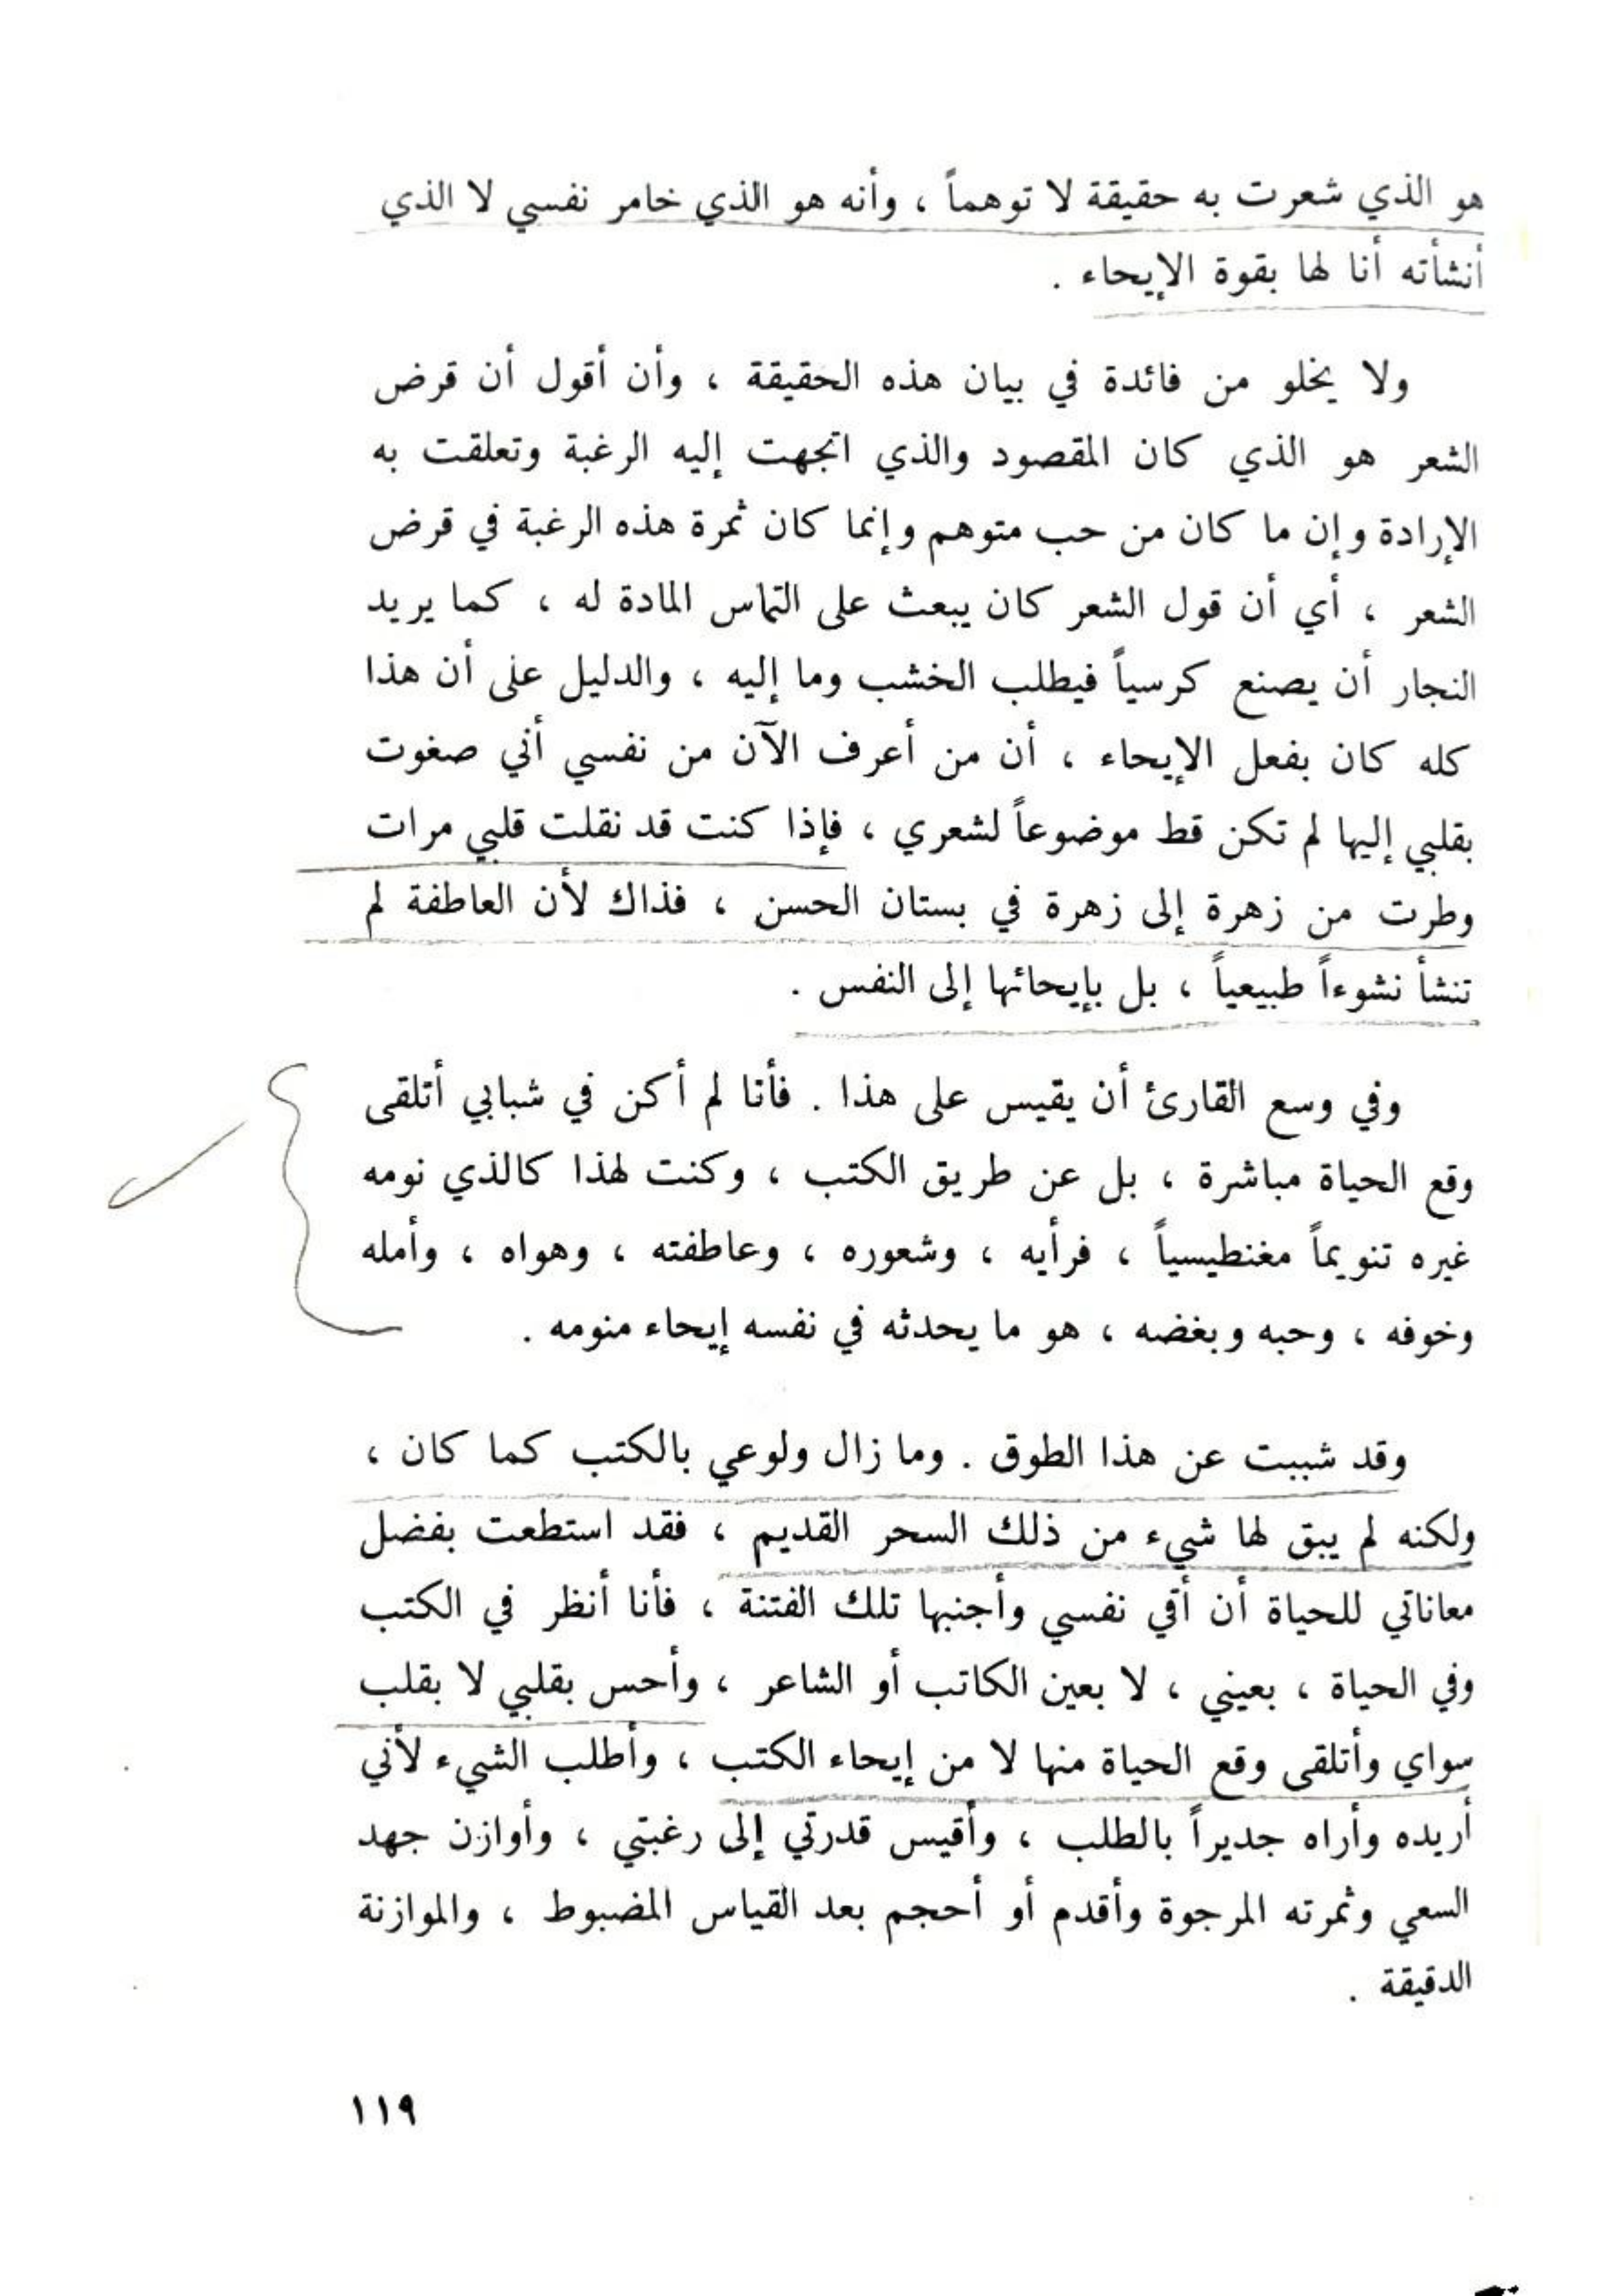 هو الذي شعرت به حقيقة لا توهماً ، وأنه هو الذي خامر نفسي لا الذي
أنشأته أنا لها بقوة الإيحاء .
ولا يخلو من فائدة في بيان هذه الحقيقة ، وأن أقول أن قرض
الشعر هو الذي كان المقصود والذي اتجهت إليه الرغبة وتعلقت به
الإرادة وإن ما كان من حب متوهم وإنما كان ثمرة هذه الرغبة في قرض
الشعر ، أي أن قول الشعر كان يبعث على التماس المادة له ، كما يريد
النجار أن يصنع كرسياً فيطلب الخشب وما إليه ، والدليل على أن هذا
كله كان بفعل الإيحاء ، أن من أعرف الآن من نفسي أني صغوت
بقلبي إليها لم تكن قط موضوعاً لشعري ، فإذا كنت قد نقلت قلبي مرات
وطرت من زهرة إلى زهرة في بستان الحسن ، فذاك لأن العاطفة لم
تنشأ نشوءاً طبيعياً ، بل بإيحائها إلى النفس .
وفي وسع القارئ أن يقيس على هذا . فأنا لم أكن في شبابي أتلقى
وقع الحياة مباشرة ، بل عن طريق الكتب ، وكنت لهذا كالذي نومه
غيره تنويماً مغنطيسياً ، فرأيه ، وشعوره ، وعاطفته ، وهواه ، وأمله
وخوفه ، وحبه وبغضه ، هو ما يحدثه في نفسه إيحاء منومه .
وقد شببت عن هذا الطوق . وما زال ولوعي بالكتب كما كان ،
ولكنه لم يبق لها شيء من ذلك السحر القديم ، فقد استطعت بفضل
معاناتي للحياة أن أقي نفسي وأجنبها تلك الفتنة ، فأنا أنظر في الكتب
وفي الحياة ، بعيني ، لا بعين الكاتب أو الشاعر ، وأحس بقلبي لا بقلب
سواي وأتلقى وقع الحياة منها لا من إيحاء الكتب ، وأطلب الشيء لأني
أريده وأراه جديراً بالطلب ، وأقيس قدرتي إلى رغبتي ، وأوازن جهد
السعي وثمرته المرجوة وأقدم أو أحجم بعد القياس المضبوط ، والموازنة
الدقيقة .
١١٩